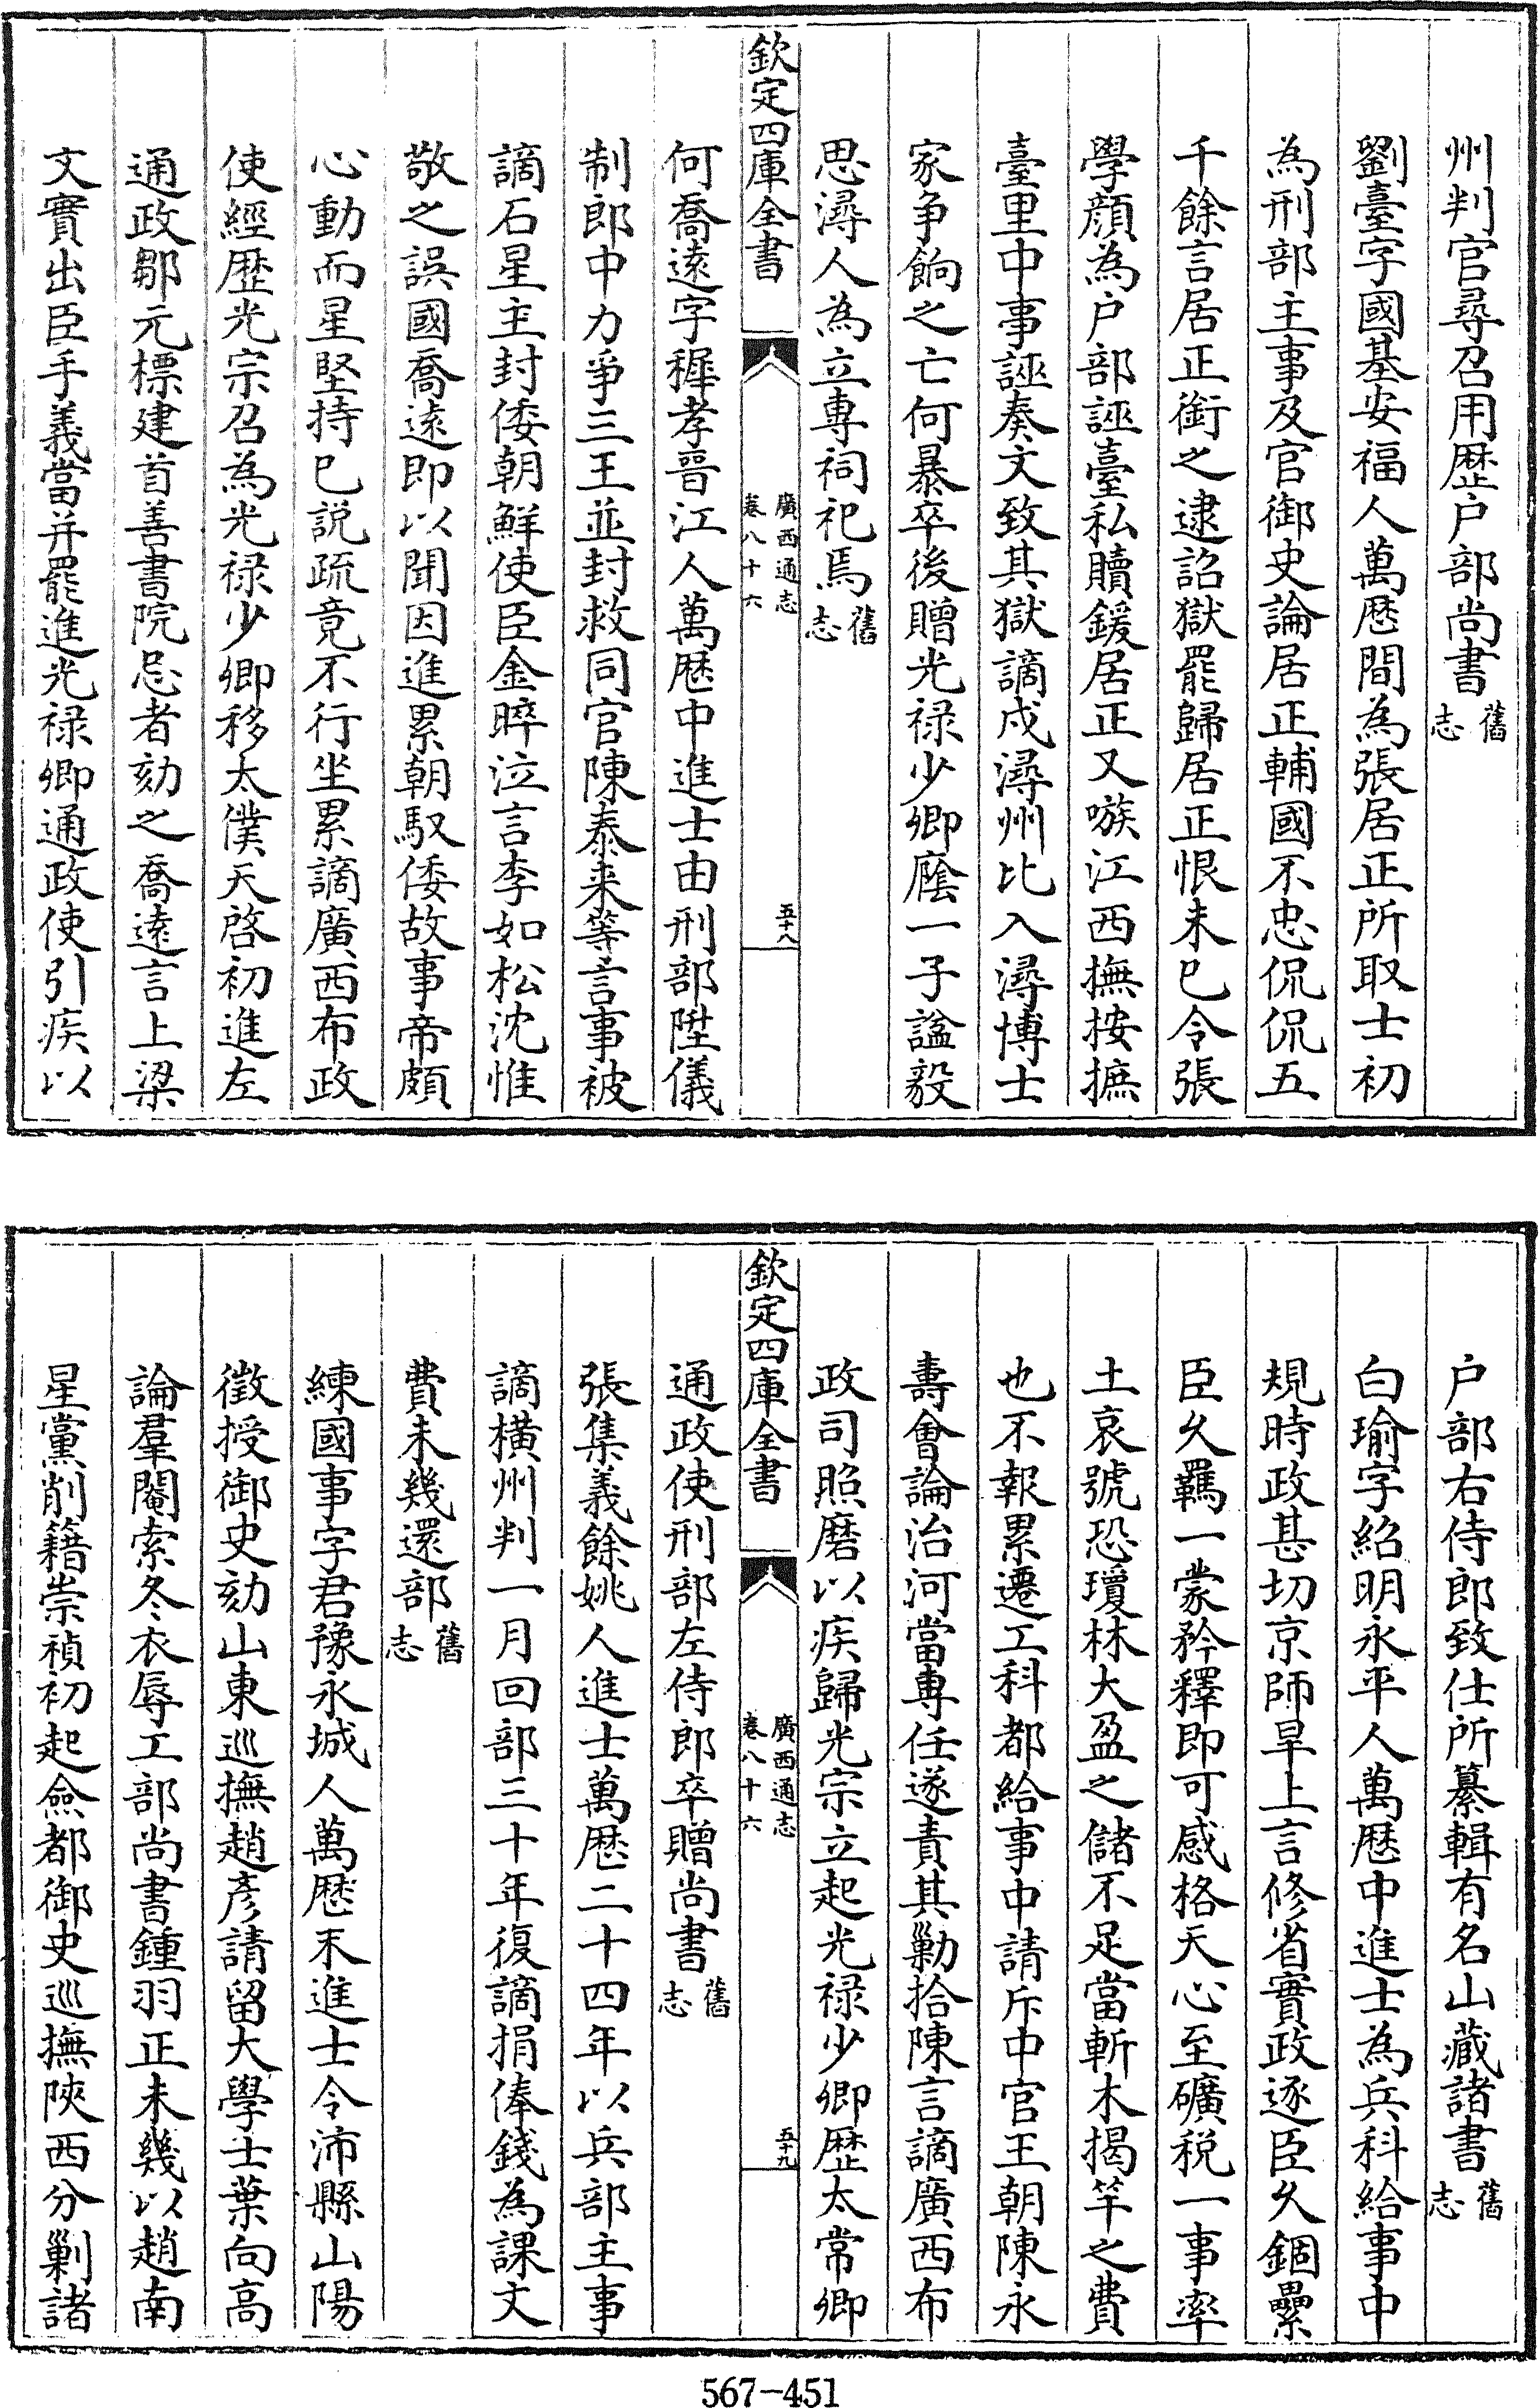 州判官尋召用歴户部尚書舊志
劉臺字國基安福人萬歴間為張居正所取士初
為刑部主事及官御史論居正輔國不忠侃侃五
千餘言居正銜之逮詔獄罷歸居正恨未已令張
學顔為户部誣臺私贖鍰居正又嗾江西撫按摭
臺里中事誣奏文致其獄謫戍潯州比入潯博士
家争餉之亡何暴卒後贈光禄少卿廕一子諡毅
思潯人為立專祠祀焉舊志
欽定四庫全書
廣西通志
卷八十六
五十八
何喬逺字穉孝晉江人萬歴中進士由刑部陞儀
制郎中力爭三王並封救同官陳泰来等言事被
謫石星主封倭朝鮮使臣金晬泣言李如松沈惟
敬之誤國喬逺即以聞因進累朝馭倭故事帝頗
心動而星堅持已説疏竟不行坐累謫廣西布政
使經歴光宗召為光禄少卿移太僕天啓初進左
通政鄒元標建首善書院忌者劾之喬逺言上梁
文實出臣手義當并罷進光禄卿通政使引疾以
户部右侍郎致仕所纂輯有名山藏諸書舊志
白瑜字紹明永平人萬歴中進士為兵科給事中
規時政甚切京師旱上言修省實政逐臣久錮纍
臣久羈一蒙矜釋即可感格天心至礦税一事率
土哀號恐瓊林大盈之儲不足當斬木揭竿之費
也不報累遷工科都給事中請斥中官王朝陳永
壽會論治河當專任遂責其勦拾陳言謫廣西布
政司照磨以疾歸光宗立起光禄少卿歴太常卿
欽定四庫全書
廣西通志
卷八十六
五十九
通政使刑部左侍郎卒贈尚書舊志
張集義餘姚人進士萬歴二十四年以兵部主事
謫横州判一月回部三十年復謫捐俸錢為課文
費未幾還部舊志
練國事字君豫永城人萬歴末進士令沛縣山陽
徵授御史劾山東巡撫趙彦請留大學士葉向高
論羣閹索冬衣辱工部尚書鍾羽正未幾以趙南
星黨削籍崇禎初起僉都御史巡撫陜西分剿諸
567-451